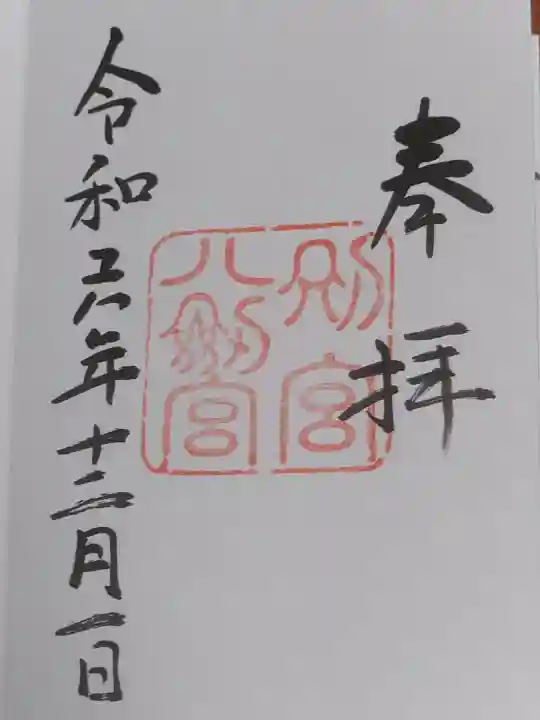 奉拝
別宮
八剣宮
令和六年十二月一日